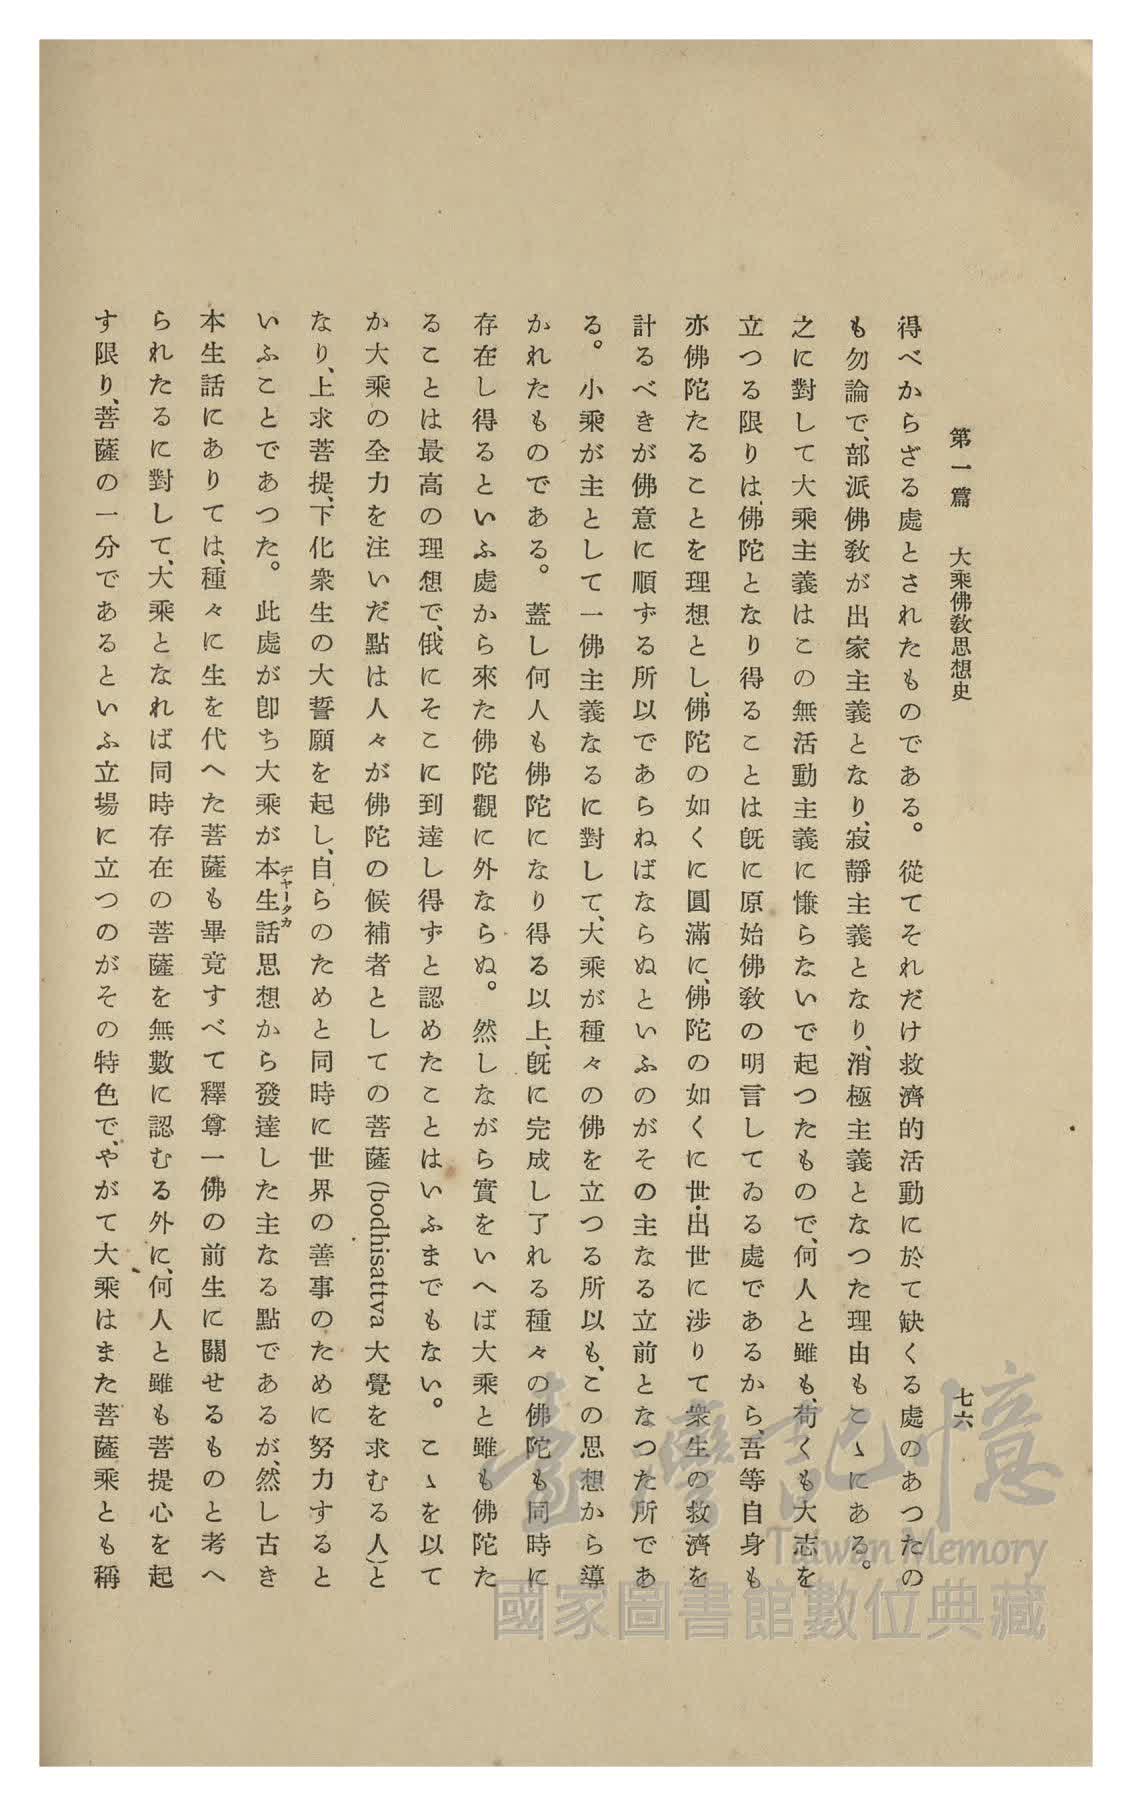 第一篇　大乘佛敎思想史
七六
得べからざる處とされたものである。從てそれだけ救濟的活動に於て缺くる處のあつたの
も勿論で、部派佛敎が出家主義となり、寂靜主義となり、消極主義となつた理由もこゝにある。
之に對して大乘主義はこの無活動主義に慊らないで起つたもので、何人と雖も、苟くも大志を
立つる限りは、佛陀となり得ることは旣に原始佛敎の明言してゐる處であるから、吾等自身も
亦佛陀たることを理想とし、佛陀の如くに圓滿に、佛陀の如くに世・出世に涉りて衆生の救濟を
計るべきが佛意に順ずる所以であらねばならぬといふのがその主なる立前となつた所であ
る。小乘が主として一佛主義なるに對して、大乘が種々の佛を立つる所以も、この思想から導
かれたものである。蓋し何人も佛陀になり得る以上、旣に完成し了れる種々の佛陀も同時に
存在し得るといふ處から來た佛陀觀に外ならぬ。然しながら實をいへば大乘と雖も佛陀た
ることは最高の理想で、俄にそこに到達し得ずと認めたことはいふまでもない。こゝを以て
か大乘の全力を注いだ點は人々が佛陀の候補者としての菩薩(bodhisattva 大覺を求むる人)と
なり、上求菩提、下化衆生の大誓願を起し、自らのためと同時に世界の善事のために努力すると
いふことであつた。此處が卽ち大乘が本生話思想から發達した主なる點であるが、然し古き
ヂャータカ
本生話にありては、種々に生を代へた菩薩も畢竟すべて釋尊一佛の前生に關せるものと考へ
られたるに對して、大乘となれば同時存在の菩薩を無數に認むる外に、何人と雖も菩提心を起
す限り、菩薩の一分であるといふ立場に立つのがその特色で、やがて大乘はまた菩薩乘とも稱
臺灣記憶
Taiwan Memory
國家圖書館數位典藏